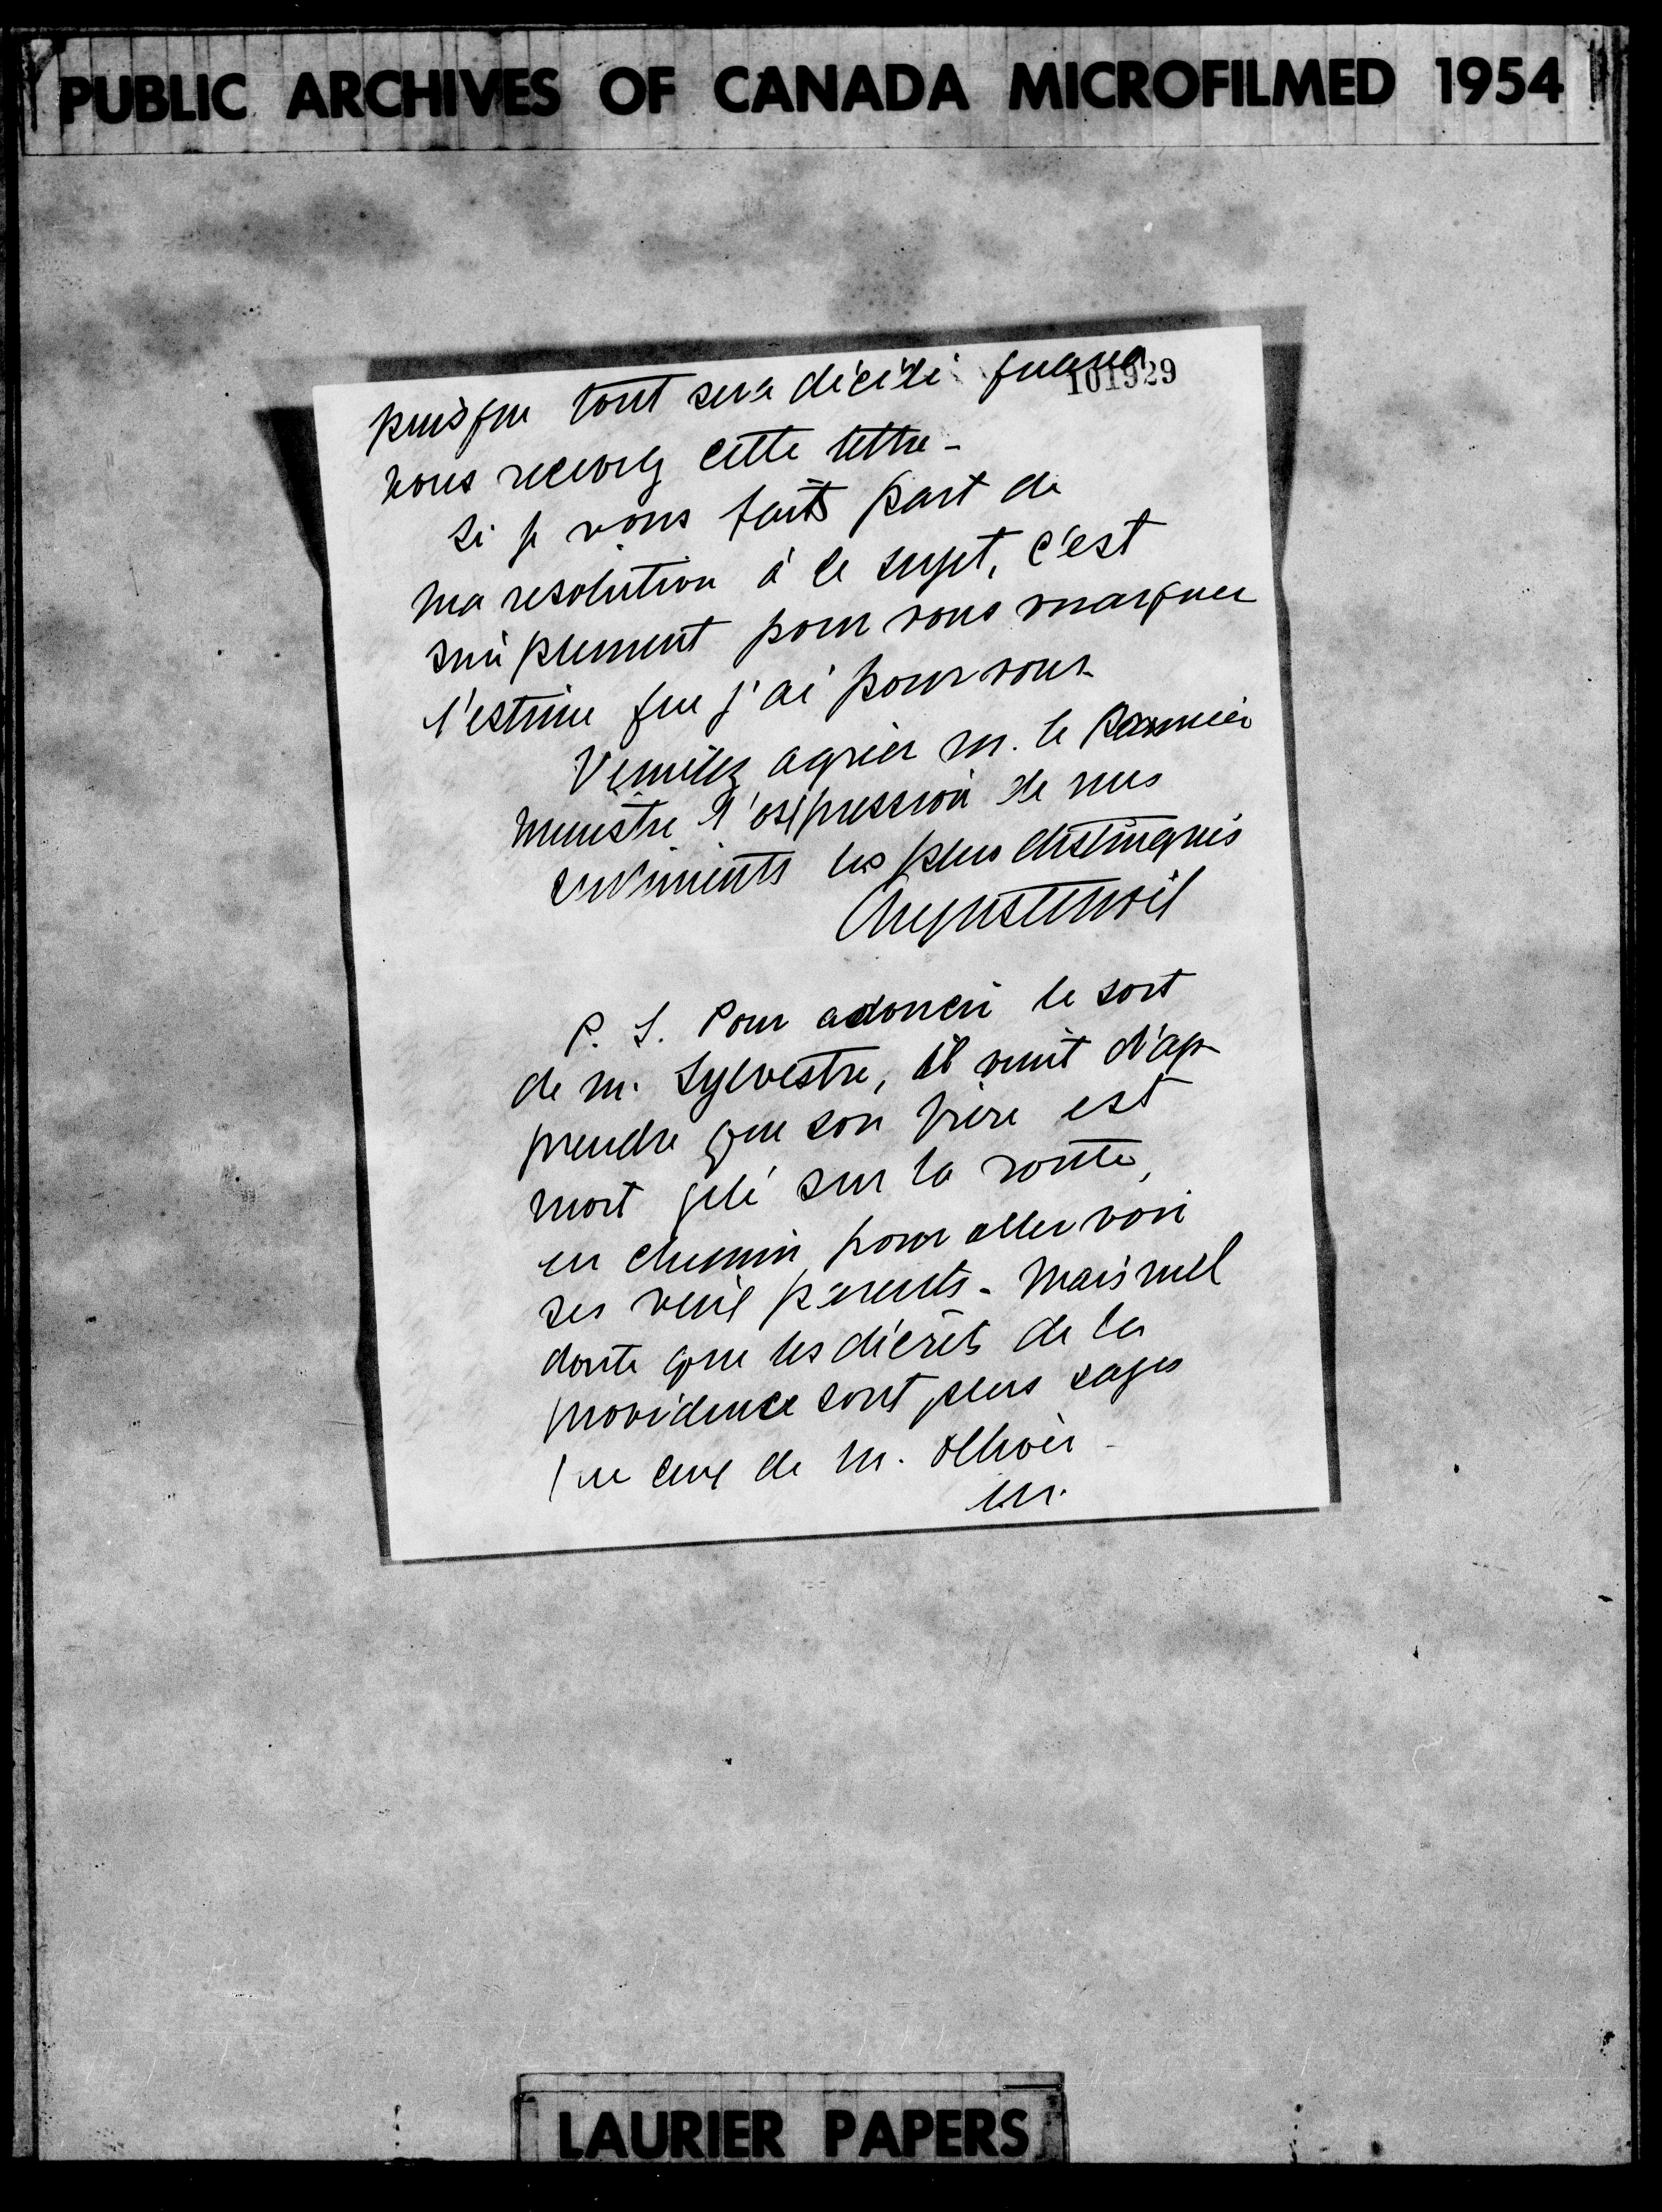 PUBLIC ARCHIVES OF CANADA MICROFILMED 1954
101929
puisque tout sera décidé quand
vous recevrez cette lettre -
Si je vous fais part de
ma resolution à ce sujet, c'est
simplement pour vous marquer
l'estime que j'ai pour vous.
Veuillez agréer M. le Premier
ministre l'expression de mes
sentiments les plus distingués
P. S. Pour adoucir le sort
de M. Sylvestre, il vient d'ap-
prendre que son frère est
mort gelé sur la route,
en chemin pour aller voir
ses vieux parents - Mais nul
doute que les décrets de la
providence sont plus sages
que ceux de M. Ollivier -
LAURIER PAPERS